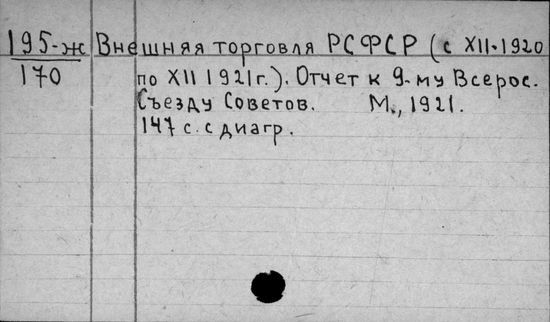 195-ж Внешняя торговля РСФСР (с XII-1920
170 по XII 1921 г.). Отчет к 9-му Всерос.
Съезду Советов. М., 1921.
147 с. с диагр.